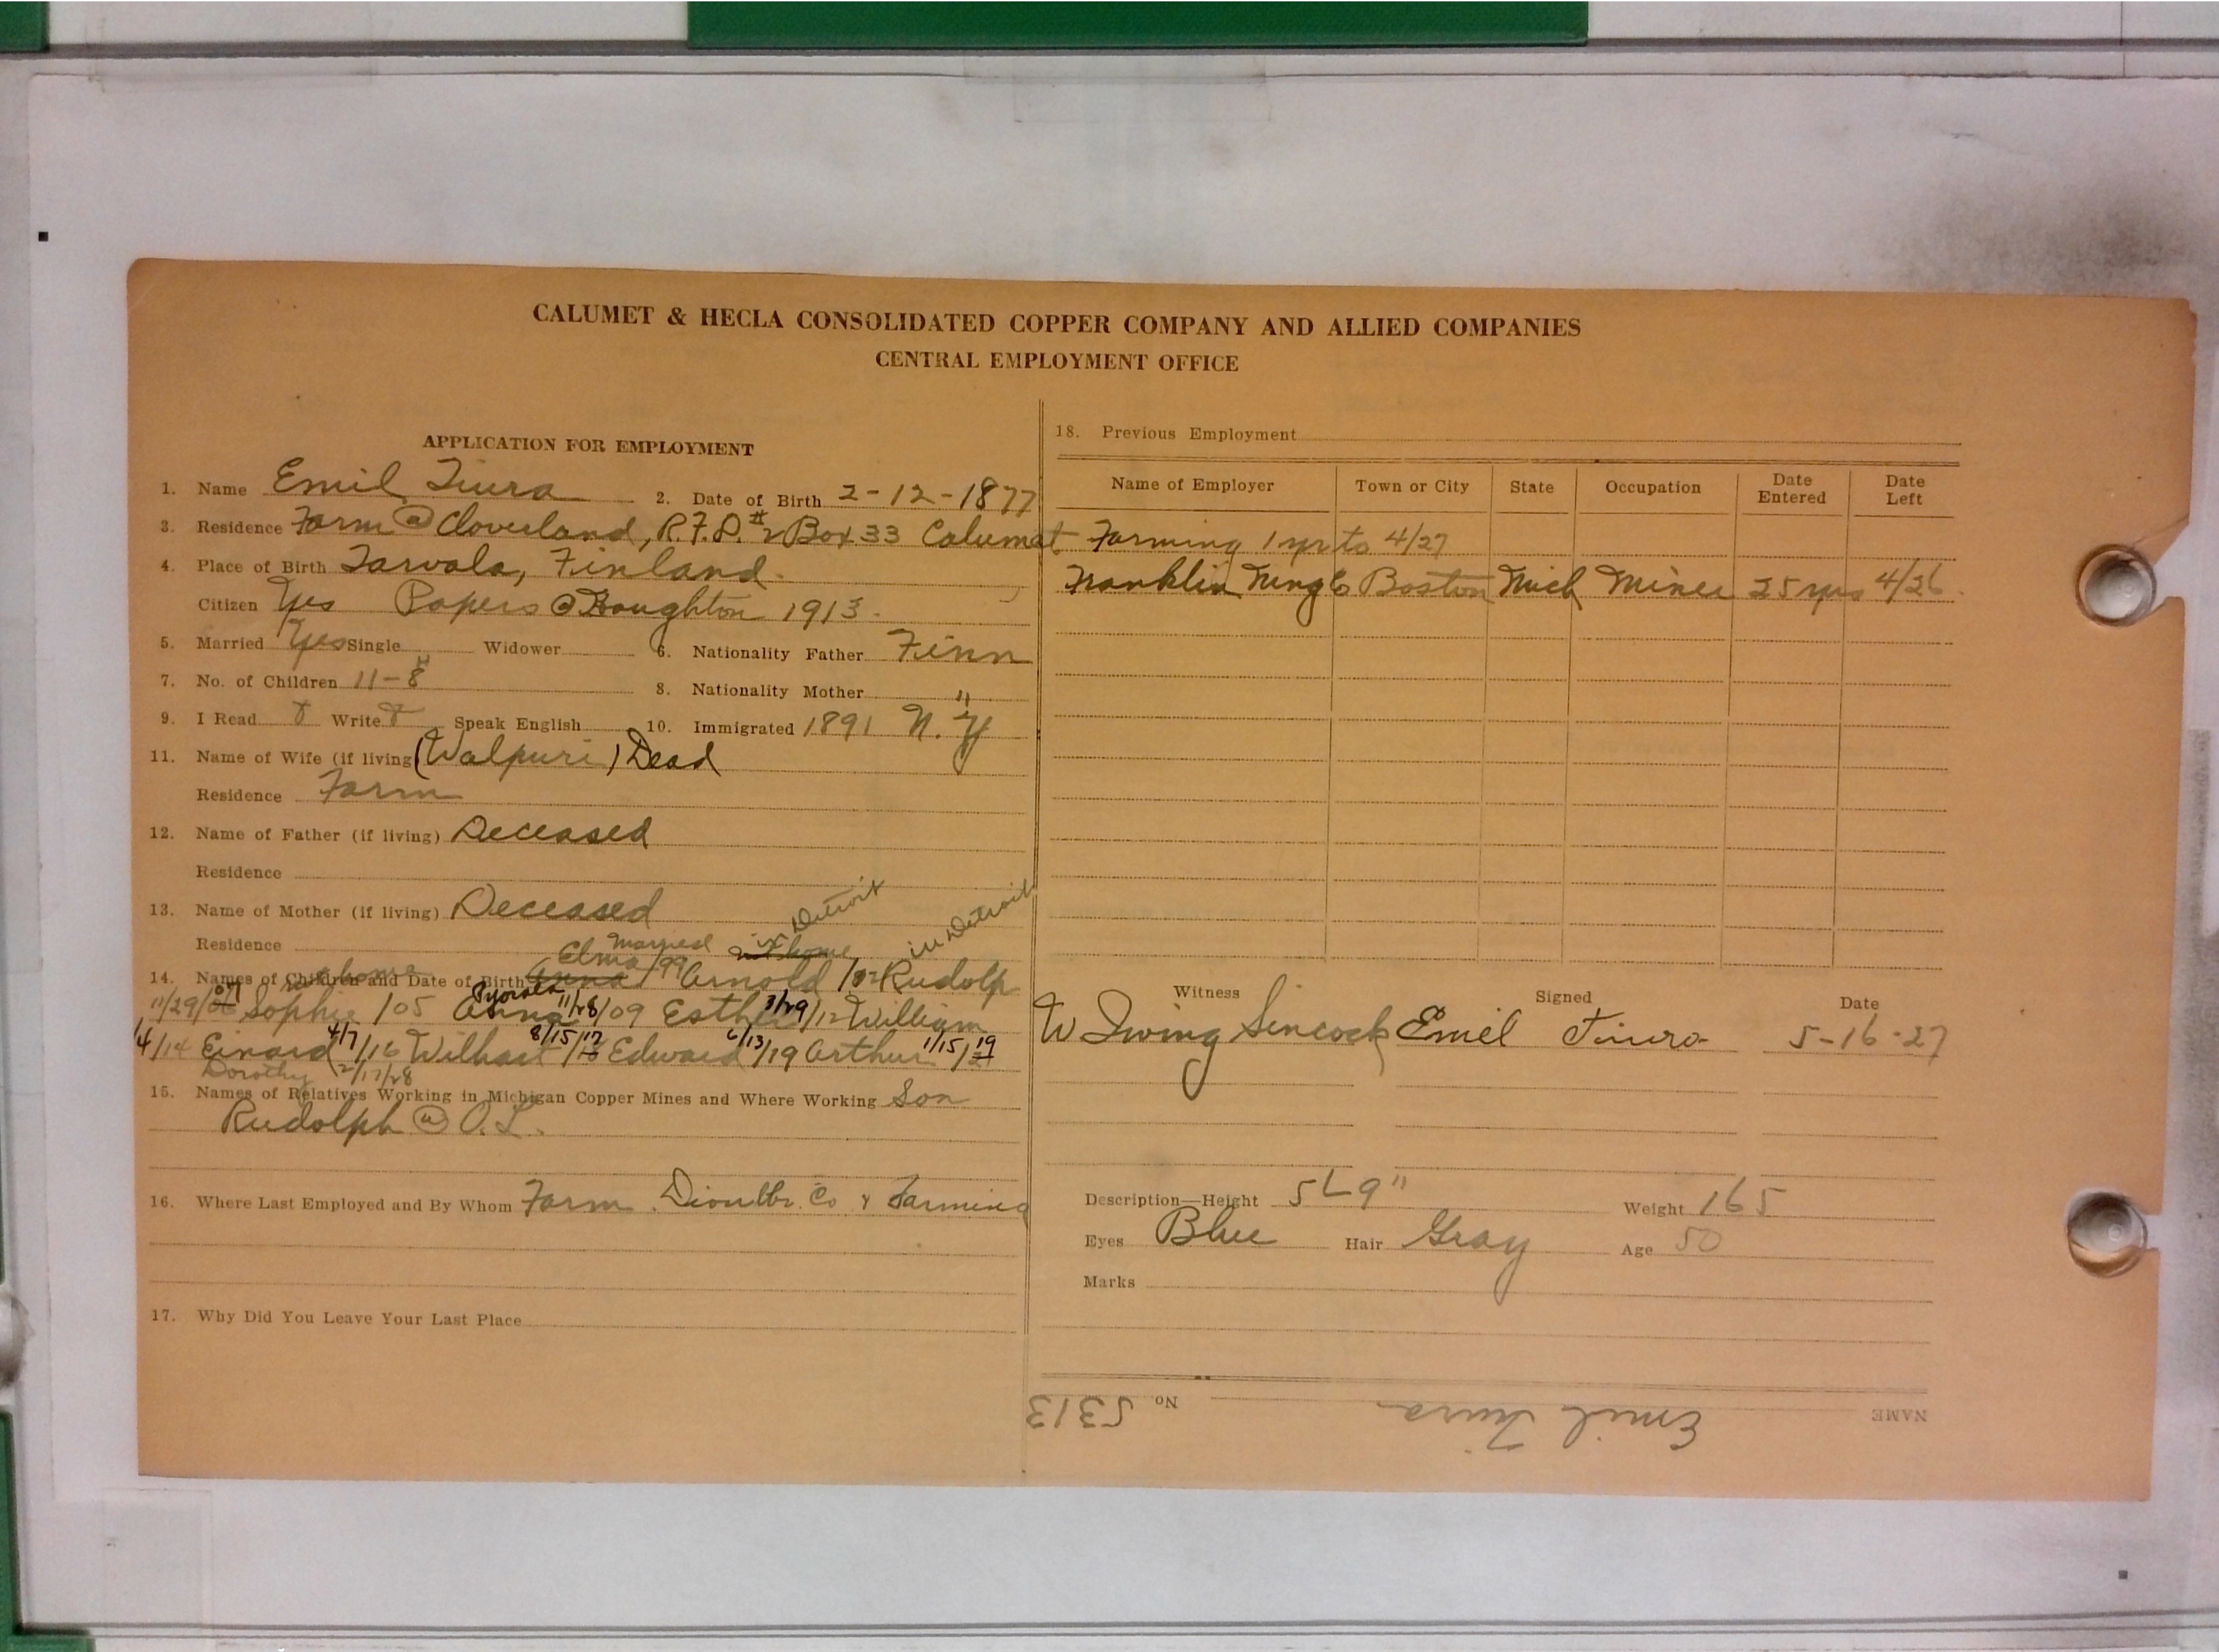 CALUMET & HECLA CONSOLIDATED COPPER COMPANY AND ALLIED COMPANIES
CENTRAL EMPLOYMENT OFFICE
APPLICATION FOR EMPLOYMENT
1. Name Emil Tiura 2. Date of Birth 2-12-1877
3. Residence Farm @ Cloverland, R.F.D. #2 Box 33 Calumet
4. Place of Birth Tarvala, Finland.
Citizen Yes Papers @ Houghton 1913.
5. Married Yes Single Widower 6. Nationality Father Finn
7. No. of Children 11-8 H 8. Nationality Mother "
9. I Read Write Speak English 10. Immigrated 1891 N.Y
11. Name of Wife (if living) (Walpuri) Dead
Residence Farm
12. Name of Father (if living) Deceased
Residence
13. Name of Mother (if living) Deceased
Residence
married in Detroit in Detroit
14. Names of Children and Date of Birth Elma /99 Arnold /02 Rudolp
11/29/07 Sophie /05 Anna 11/28/09 Esther /12 William
1/4/14 Einard 4/7/16 Wilhart 8/15/17 Edward 6/13/19 Arthur 1/15/19
Dorothy 2/17/28
15. Names of Relatives Working in Michigan Copper Mines and Where Working Son
Rudolph @ O.L.
16. Where Last Employed and By Whom Farm. Co & Farming
17. Why Did You Leave Your Last Place
18. Previous Employment
Name of Employer Town or City State Occupation Date Entered Date Left
Farming 1 yr to 4/27
Franklin Mng Co Boston Mich Miner 25 yrs 4/26
Witness Signed Date
W Irving Sincock Emil Tiura 5-16-27
Description—Height 5' 9" Weight 165
Eyes Blue Hair Gray Age 50
Marks
NAME Emil Tiura No. 5313